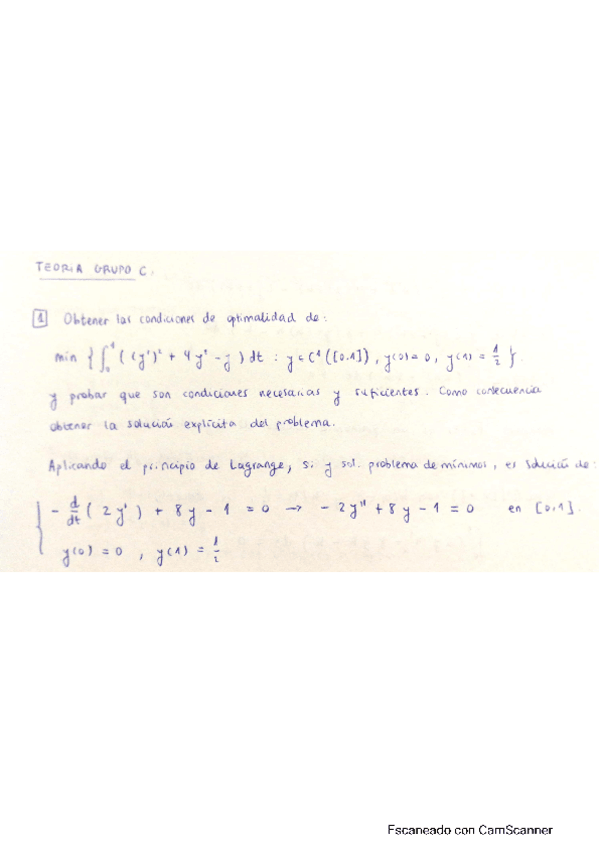 TEORIA GRUPO C.
1 Obtener las condiciones de optimalidad de:
min { ∫₀¹ ( (y')² + 4y² - y ) dt : y ∈ C¹([0,1]), y(0) = 0, y(1) = 1/2 }.
y probar que son condiciones necesarias y suficientes. Como consecuencia
obtener la solución explícita del problema.
Aplicando el principio de Lagrange, si y sol. problema de mínimos, es solución de:
- d/dt ( 2y' ) + 8y - 1 = 0 → - 2y'' + 8y - 1 = 0 en [0,1].
y(0) = 0 , y(1) = 1/2
Escaneado con CamScanner